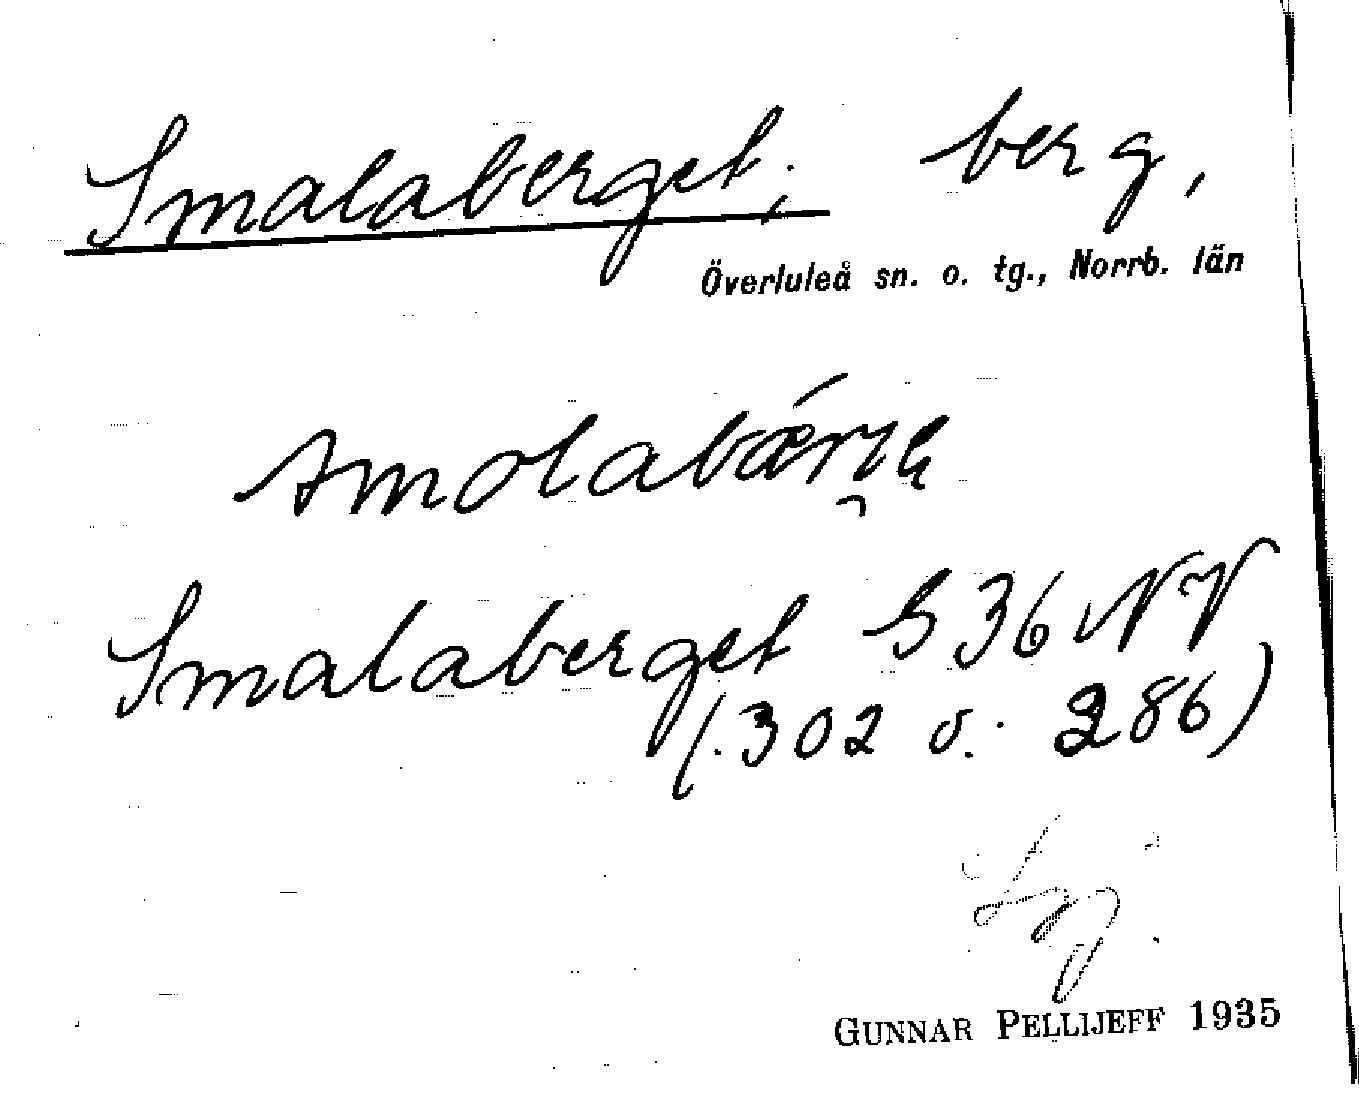 Smalaberget, berg,
Överluleå sn. o. tg., Norrb. län
Smalaberget S 36 NV
(.302 o. 286)
GUNNAR PELLIJEFF 1935